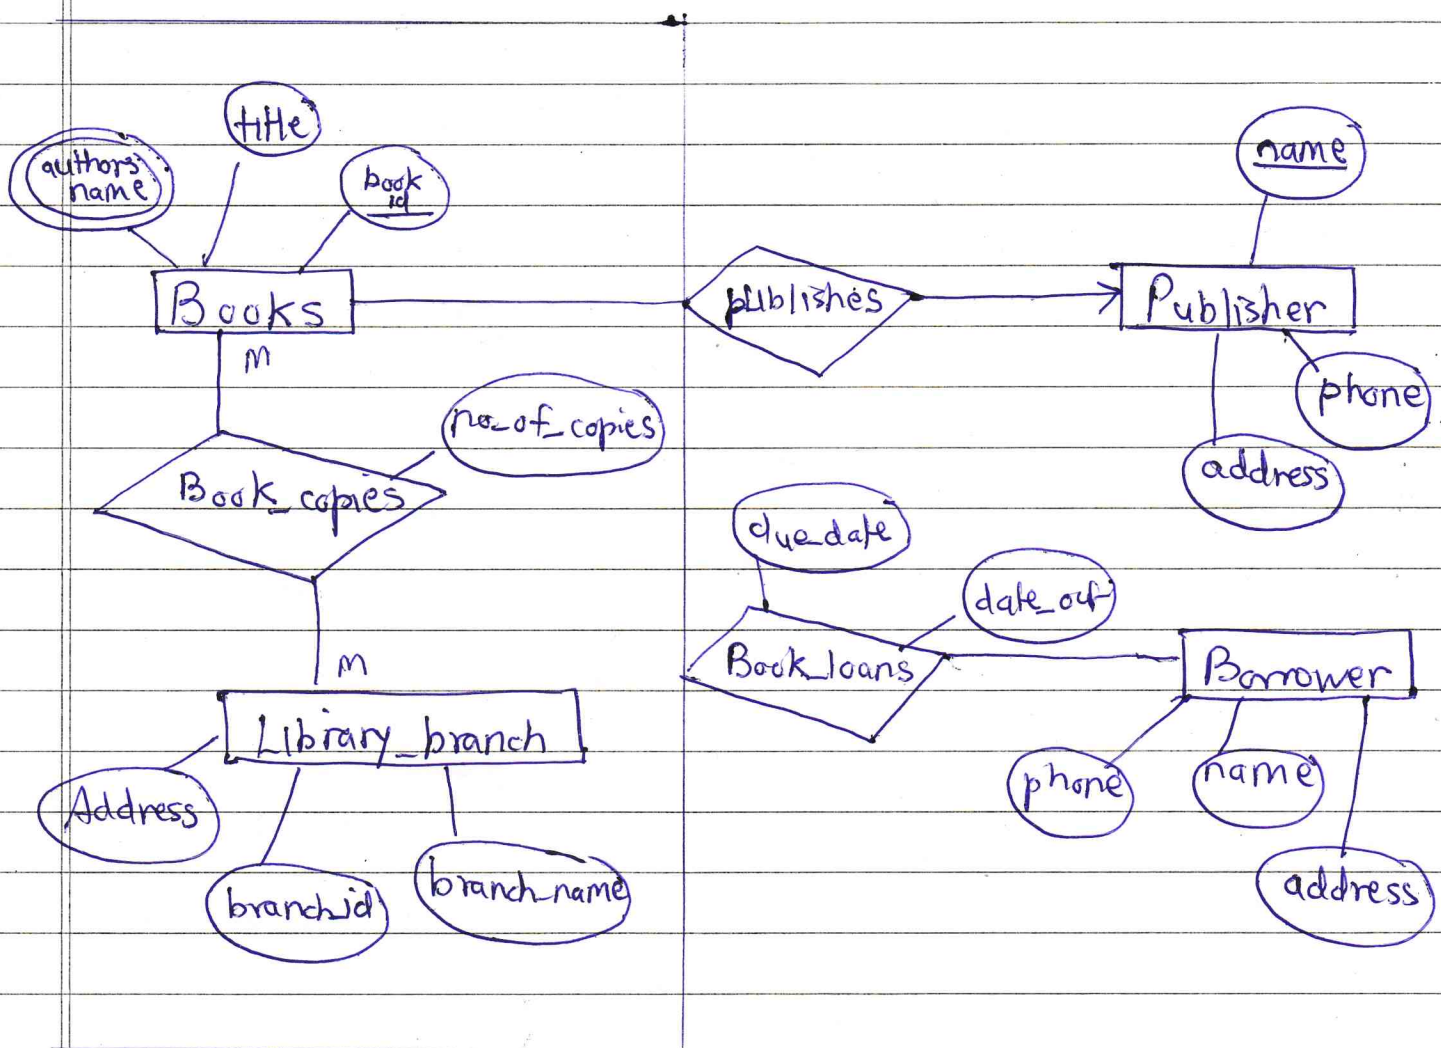 title
authors
name
book
id
name
Books
publishes
Publisher
M
phone
no_of_copies
address
Book_copies
due_date
date_out
M
Book_loans
Borrower
Library_branch
phone
name
Address
branch_id
branch_name
address